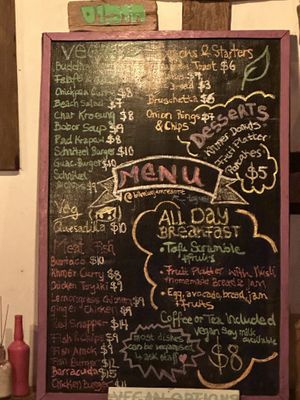 Vegan
Buddha
Falafel
Chickpea Curry $8
Beach Salad $7
Char Kroeung $8
Bobor Soup $9
Pad Krapaw $8
Schnitzel Burger $10
Guac-Burger $10
Schnitzel
$9
Veg
Quesadilla $10
Meat Fish
Burtaco $10
Khmer Curry $8
Chicken Teryaki $9
Lemongrass Chicken
Ginger Chicken $9
Red Snapper $14
Fish n Chips $9
Fish Amok $9
Fish Burger $11
Barracuda $15
Chicken Burger
& Starters
$6
Toast $3
Bruschetta
Onion Rings $7
& Chips
DESSERTS
Khmer Donuts
Fruit Platter
Pancakes
$5
MENU
ALL DAY
BREAKFAST
• Tofu Scramble
+ fruits
• Fruit Platter with Musli
homemade Bread & jam
• Egg, avocado, bread, jam
+ fruits
Coffee or Tea included
Vegan Soy milk
available
$8
most dishes
can be veganised
ask staff
VEGAN OPTIONS